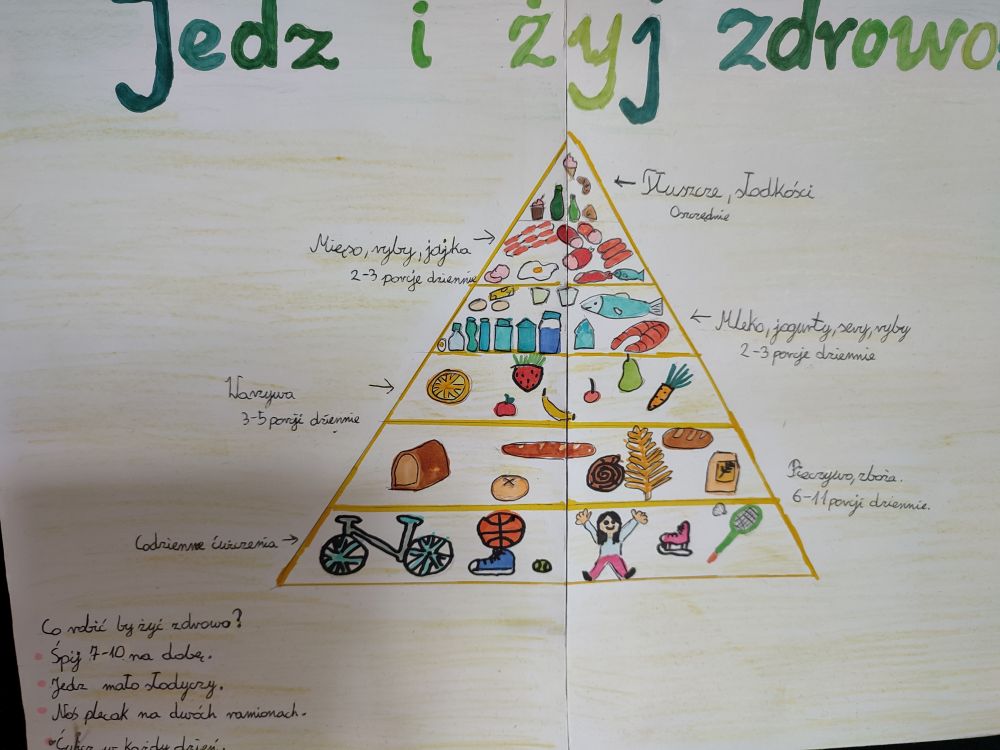 Jedz i żyj zdrowo
← Tłuszcze, słodkości
Oszczędnie
Mięso, ryby, jajka →
2-3 porcje dziennie
← Mleko, jogurty, sery, ryby
2-3 porcje dziennie
Warzywa →
3-5 porcji dziennie
Pieczywo, zboża.
6-11 porcji dziennie.
Codzienne ćwiczenia →
Co robić by żyć zdrowo?
Śpij 7-10 na dobę.
Jedz mało słodyczy.
Noś plecak na dwóch ramionach.
Ćwicz w każdy dzień.